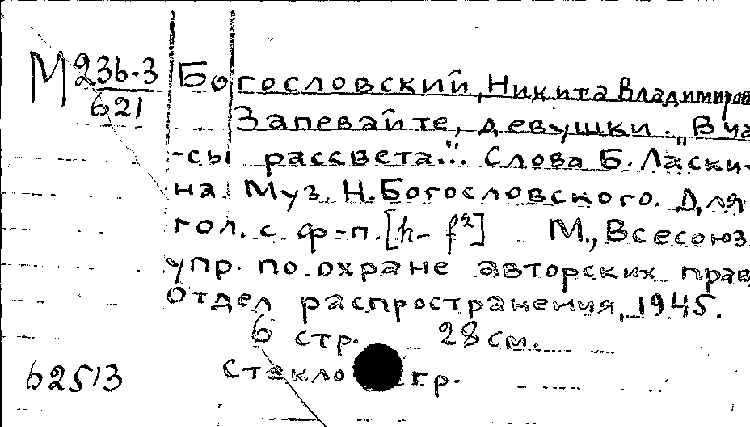 М 236-3
621
Богословский, Никита Владимиров
Запевайте, девушки. „В ча-
-сы рассвета.". Слова Б. Ласки-
на. Муз. Н. Богословского. Для
гол. с ф-п. [h - f²] М., Всесоюз.
упр. по охране авторских прав
Отдел распространения, 1945.
6 стр. 28 см.
62513 Стекло гр.